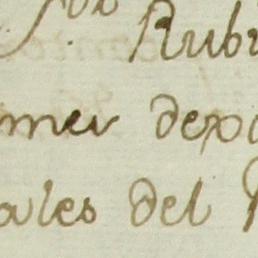 or Rubi
mer depo
ales del